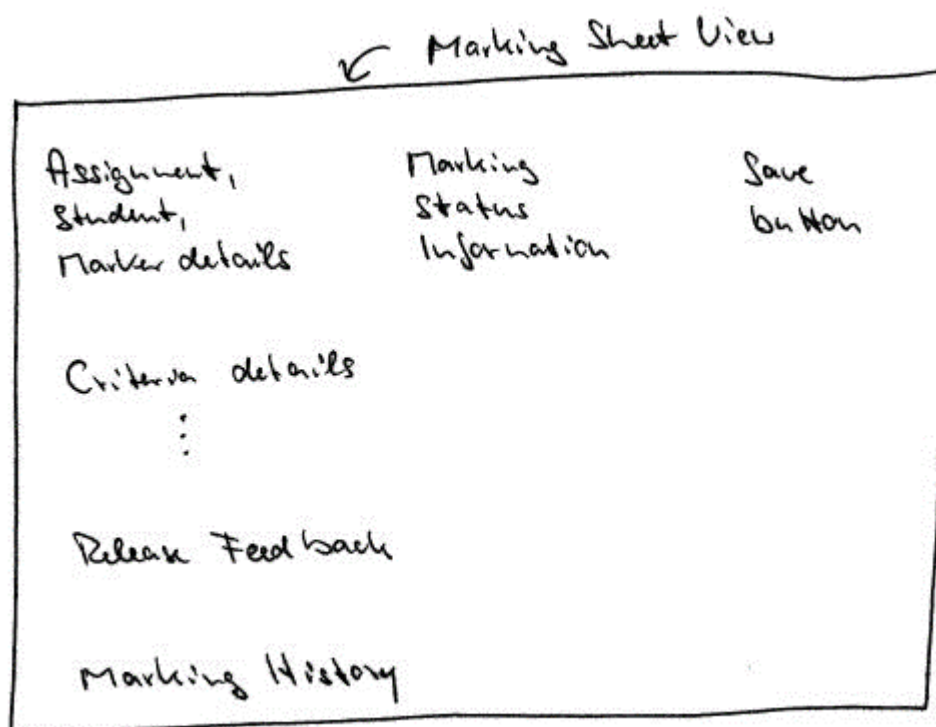 Marking Sheet View
Assignment,
Student,
Marker details
Marking
Status
Information
Save
button
Criteria details
⋮
Release Feedback
Marking History